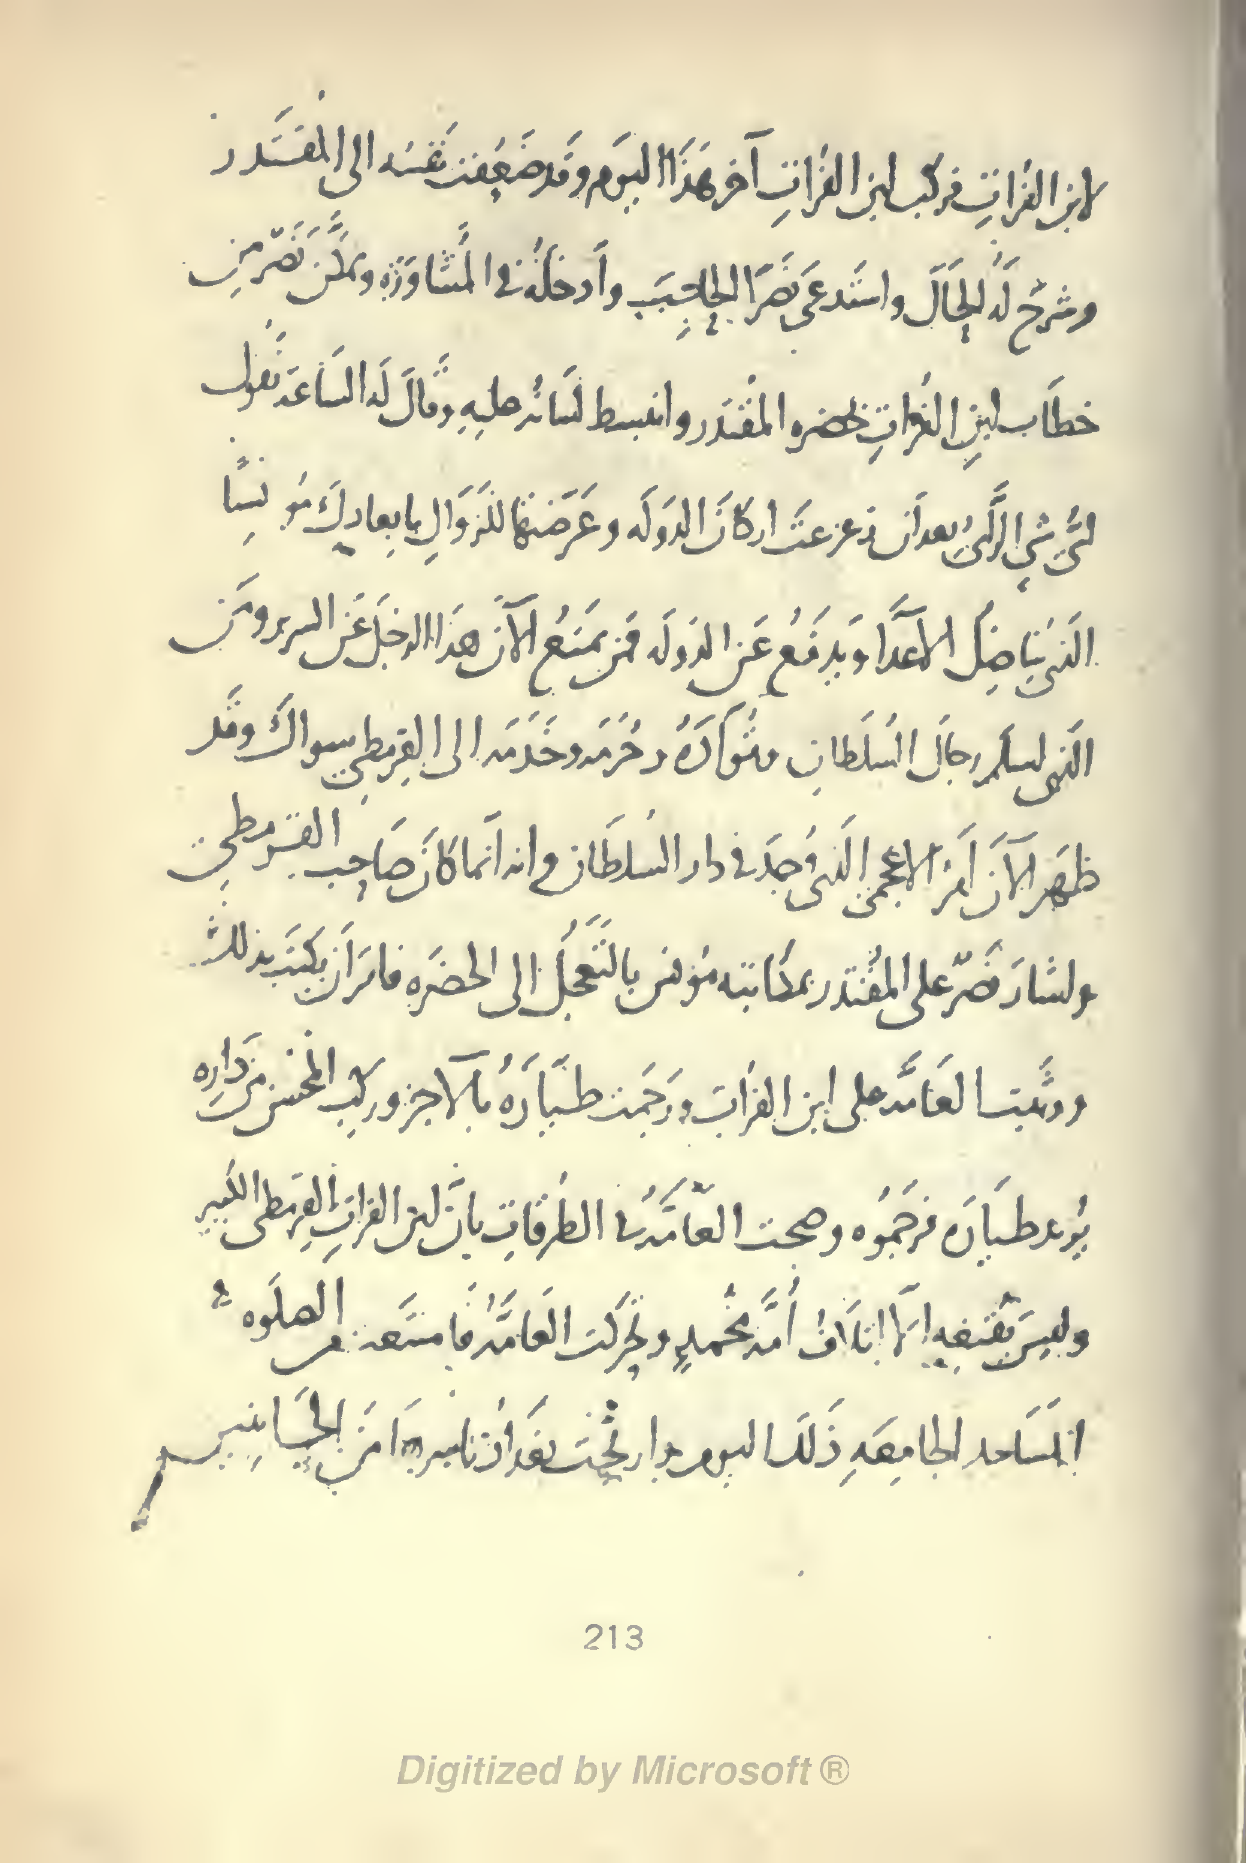 لابن الفُراتِ فركب ابن الفُراتِ آخر هَذَا اليَوم وقَد ضَعُفت نَفسُه الى المُقتَدر
وشرَح لَه الحَالَ واستَدعَى نَصرًا الحاجِبَ وأَدخلَهُ في المُشَاوَرَةِ وتمكَّن نَصرٌ من
خطَاب ابنِ الفُراتِ بحضره المُقتَدر وانبسط لسَانُه عليهِ وقَالَ لَه السَاعَة تَقول
اىّ شىٍ الرأىُ بعد أن زعزعتَ اركَانَ الدَولَه وعَرَّضتَها للزَوَالِ بابعادِكَ مُونِسًا
الَذى يُناضِلُ الاعدَآ ويَدفَعُ عَن الدَولَه فمَن يمنَعُ الآن هَذا الرجلَ عَن السرير ومَن
الَذى اسلم رجالَ السُلطانِ وقُوَّادَهُ وحُرمَه وخَدَمَه الى القِرمطِي سواكَ وقَد
ظَهَر الآنَ أمرُ الاعجمى الَذى وُجدَ في دار السُلطَان وانه انَما كَانَ صَاحِب القِرمطي
واشارَ نَصرٌ على المُقتَدر بمكَاتبته مُونس بالتَعجُل الى الحضرَه فامَر أن يكتَبَ بذلك
ووثَبت العَامَّه على ابن الفُرات ورَجَمت طَيّارَهُ بالآجر وركب المُحسن من دَارِه
يُريد طيَارَه فرَجَمُوه وصحت العَامَّهُ في الطُرقَاتِ بانَ ابن الفراتِ القِرمطى الكَبير
وليسَ يقنعه الَا اتلافُ أُمَّه مُحَمدٍ وتحرَكت العَامَّهُ فامتَنَعت من الصلَوه في
المسَاجد الجامِعَهِ ذَلك اليوم وارتجَت بغداذ باسرها من الجَانِبين
213
Digitized by Microsoft ®